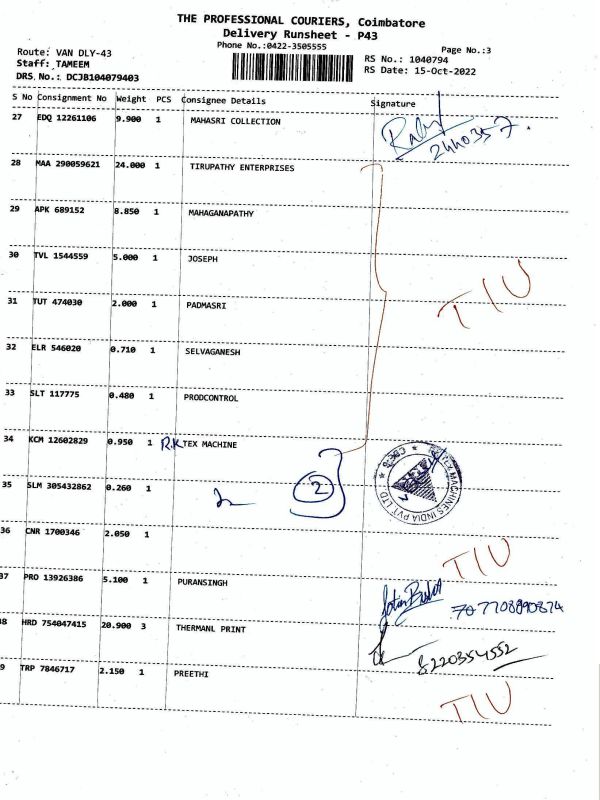 THE PROFESSIONAL COURIERS, Coimbatore
Delivery Runsheet - P43
Phone No.:0422-3505555
Page No.:3
Route: VAN DLY-43
RS No.: 1040794
Staff: TAMEEM
RS Date: 15-Oct-2022
DRS No.: DCJB104079403
S No Consignment No Weight PCS Consignee Details Signature
27 EDQ 12261106 9.900 1 MAHASRI COLLECTION
2440357.
28 MAA 290059621 24.000 1 TIRUPATHY ENTERPRISES
29 APK 689152 8.850 1 MAHAGANAPATHY
30 TVL 1544559 5.000 1 JOSEPH
TIU
31 TUT 474030 2.000 1 PADMASRI
32 ELR 546020 0.710 1 SELVAGANESH
33 SLT 117775 0.480 1 PRODCONTROL
34 KCM 12602829 0.950 1 R.K TEX MACHINE
35 SLM 305432862 0.260 1 2
TEX MACHINES INDIA PVT LTD
36 CNR 1700346 2.050 1 TIU
37 PRO 13926386 5.100 1 PURANSINGH
38 HRD 754047415 20.900 3 THERMANL PRINT
8220354552
39 TRP 7846717 2.150 1 PREETHI TIU